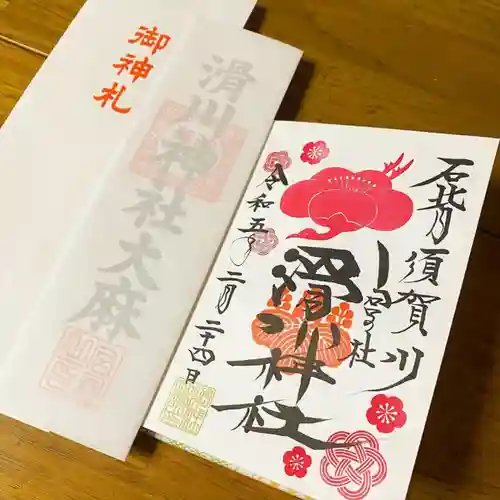 御神札
滑川神社大麻
石背
須賀川
滑川神社
令和五年
二月二十四日